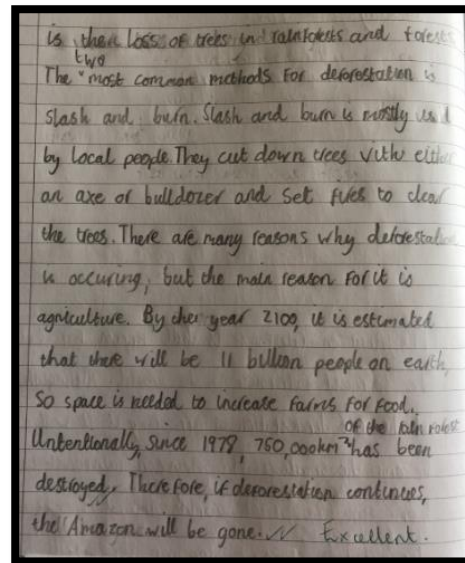 is then loss of trees in rainforests and forests
two
The "most common methods for deforestation is
slash and burn. Slash and burn is mostly used
by local people. They cut down trees with either
an axe or bulldozer and set fires to clear
the trees. There are many reasons why deforestation
is occuring, but the main reason for it is
agriculture. By the year 2100, it is estimated
that there will be 11 billion people on earth,
So space is needed to increase farms for food.
of the rain forest
Untentionally, since 1978, 750,000km² has been
destroyed. Therefore, if deforestation continues,
the Amazon will be gone. Excellent.